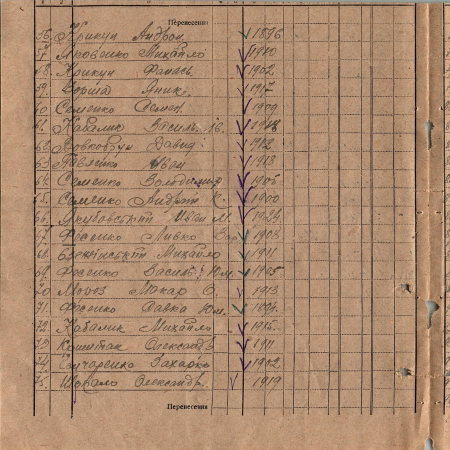 Перенесення
56. Крикун Андрон 1896
57. Яковенко Михайло 1910
58. Крикун Фанась 1902
59. 1917
60. Семенко Семен 1909
61. Кабалик Василь Ів. 1908
62. Ковбовтун Давид 1912
63. Іван 1918
64. Семенко Володимир 1905
65. Семенко Андрій К. 1900
66. Якубовський Іван М. 1924
67. Фесенко Ливко 1908
68. Бежинський Михайло 1911
69. Фесенко Василь Юм. 1905
70. Мороз Макар О. 1913
71. Фесенко Савка Юм.
72. Кабалик Михайло 1915
73. Кошитак Олександ. 1911
74. Гончаренко Захарко 1902
75. Шовкало Олександр. 1919
Перенесення